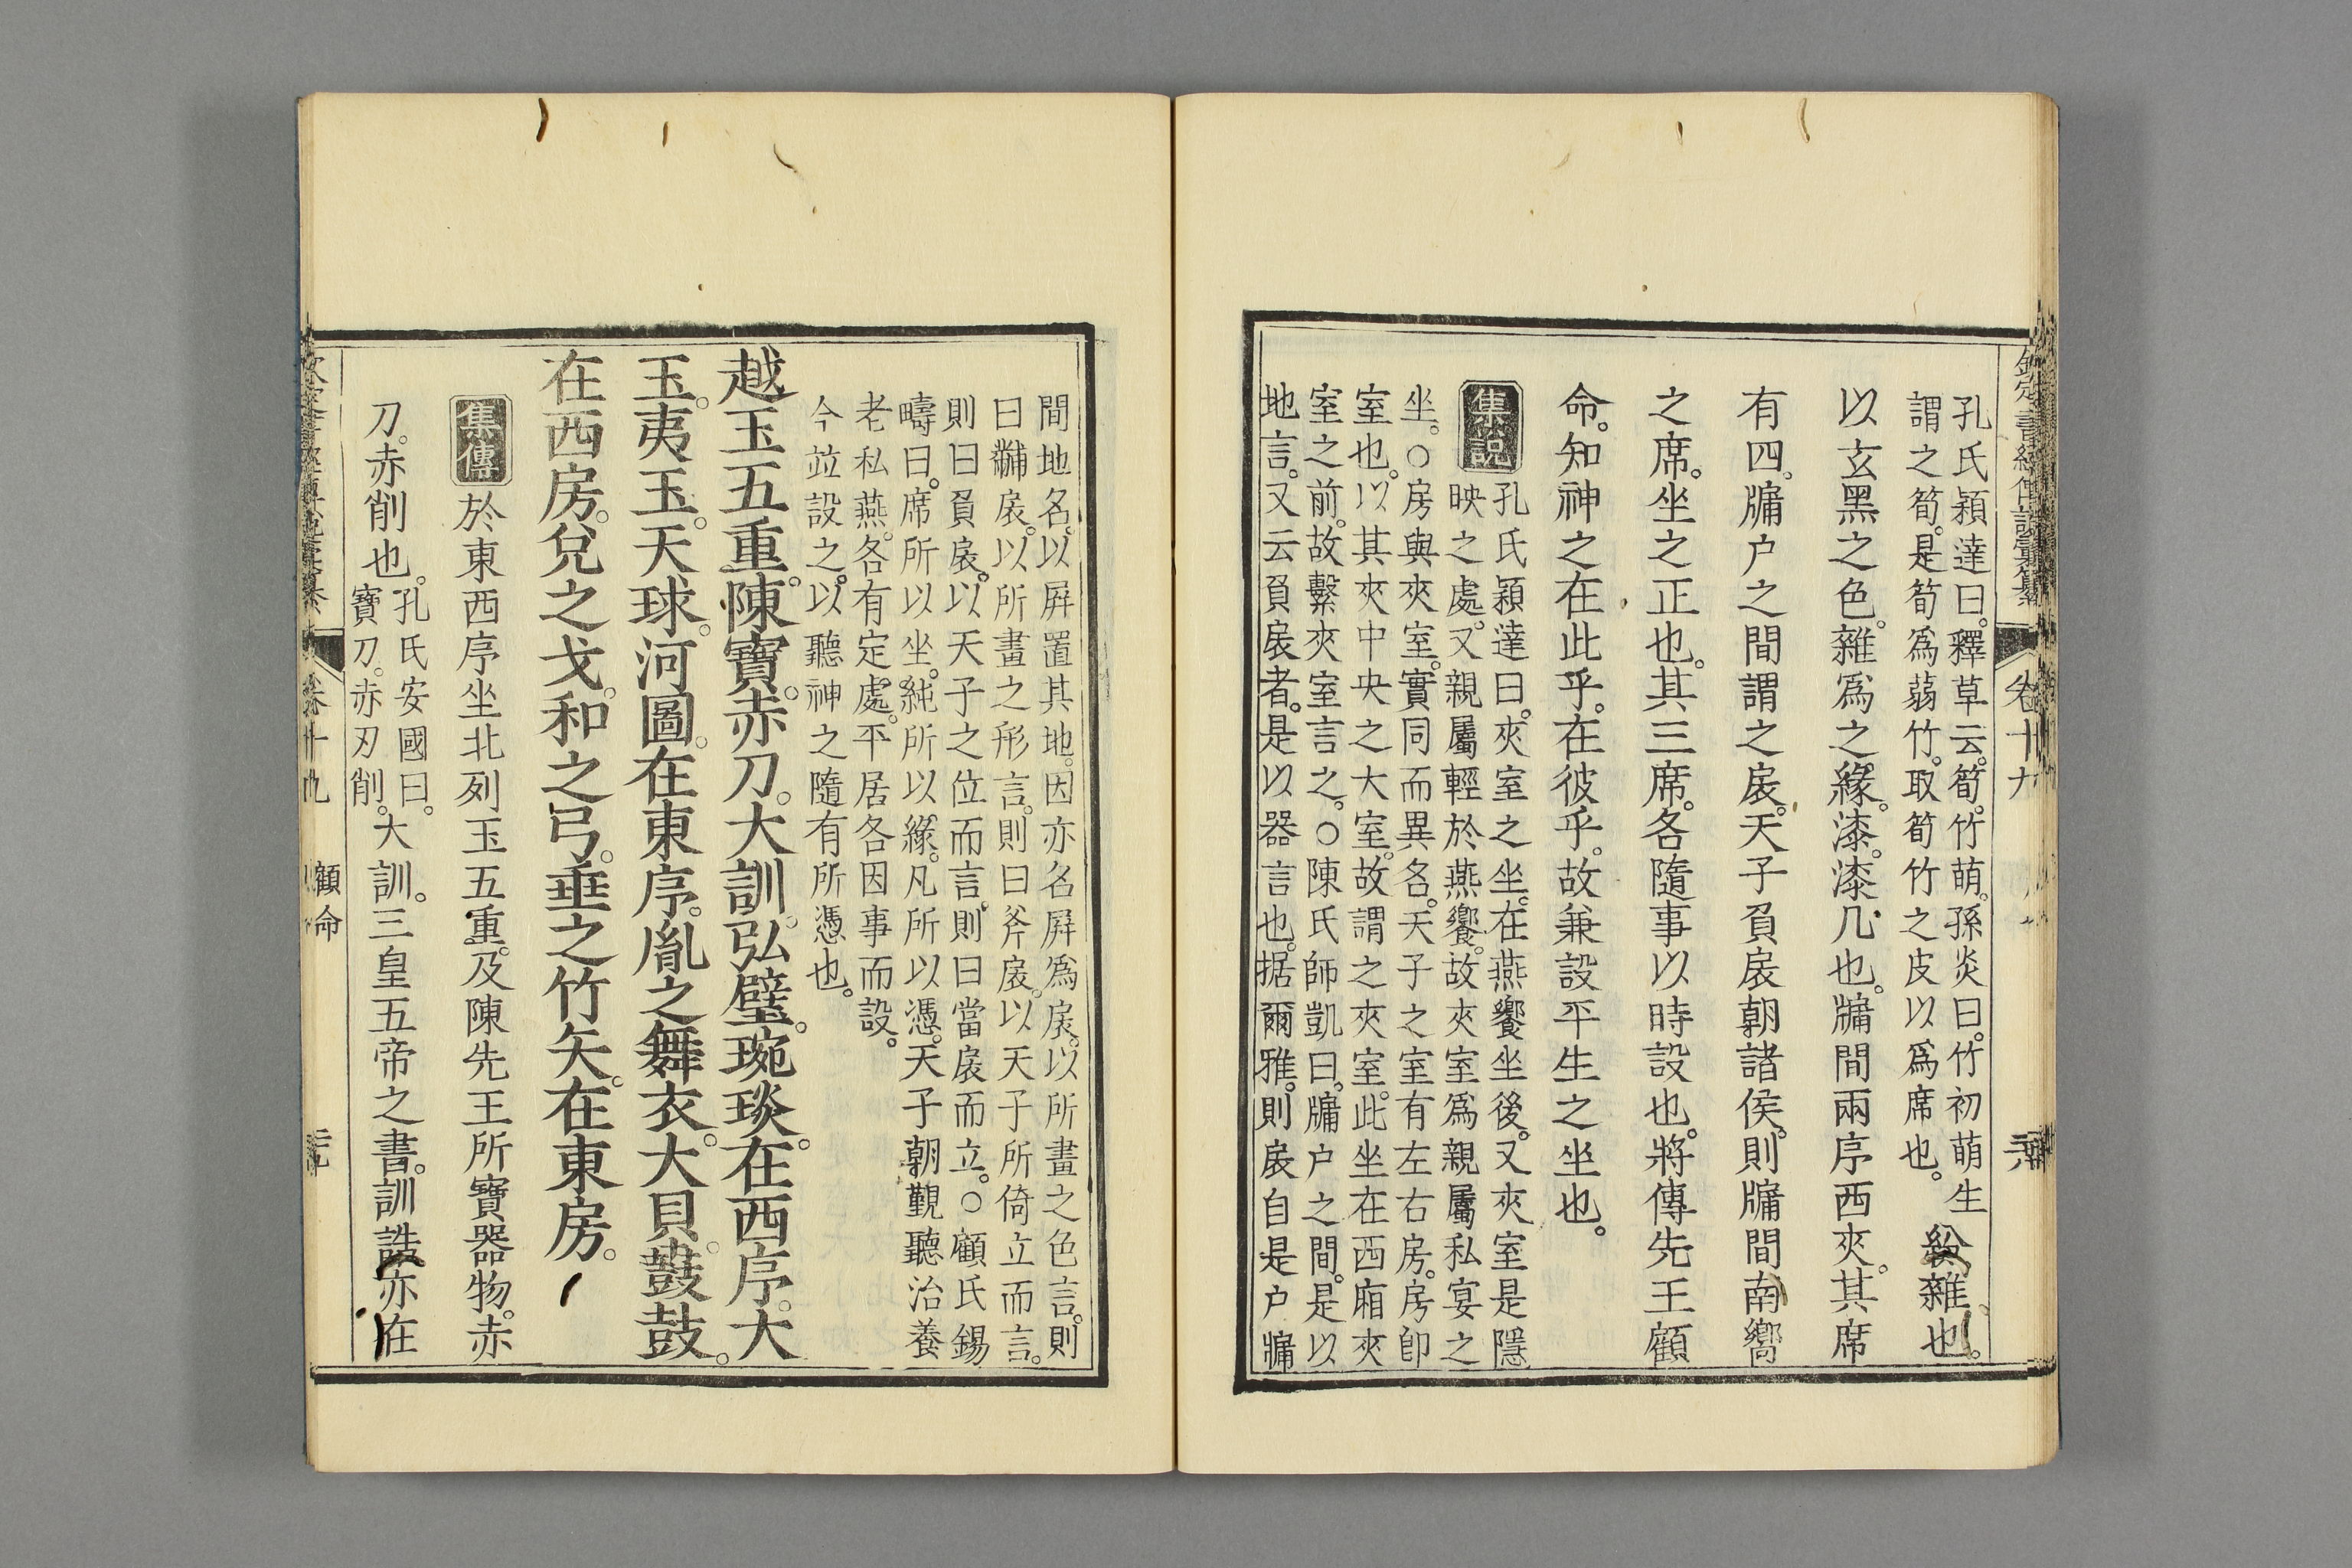 欽定書經傳說彙纂 卷十九
孔氏穎達曰。釋草云。筍。竹萌。孫炎曰。竹初萌生
謂之筍。是筍爲蒻竹。取筍竹之皮以爲席也。
紛雜也。
以玄黑之色。雜爲之緣。漆。漆几也。牖間兩序西夾。其席
有四。牖户之間謂之扆。天子負扆朝諸侯。則牖間南嚮
之席。坐之正也。其三席。各隨事以時設也。將傳先王顧
命。知神之在此乎。在彼乎。故兼設平生之坐也。
集說
孔氏穎達曰。夾室之坐。在燕饗坐後。又夾室是隱
映之處。又親屬輕於燕饗。故夾室爲親屬私宴之
坐。○房與夾室。實同而異名。天子之室有左右房。房卽
室也。以其夾中央之大室。故謂之夾室。此坐在西廂夾
室之前。故繫夾室言之。○陳氏師凱曰。牖户之間。是以
地言。又云負扆者。是以器言也。据爾雅。則扆自是户牖
間地名。以屛置其地。因亦名屛爲扆。以所畫之色言。則
曰黼扆。以所畫之形言。則曰斧扆。以天子所倚立而言。
則曰負扆。以天子之位而言。則曰當扆而立。○顧氏錫
疇曰。席所以坐。純所以緣。凡所以憑。天子朝覲聽治養
老私燕。各有定處。平居各因事而設。
今竝設之。以聽神之隨有所憑也。
越玉五重。陳寶。赤刀。大訓。弘璧。琬琰。在西序。大
玉。夷玉。天球。河圖。在東序。胤之舞衣。大貝。鼖鼓。
在西房。兌之戈。和之弓。垂之竹矢。在東房。
集傳
於東西序坐北列玉五重。及陳先王所寶器物。赤
刀。赤削也。
孔氏安國曰。
寶刀。赤刃削。
大訓。三皇五帝之書。訓誥亦在
卷十九 顧命